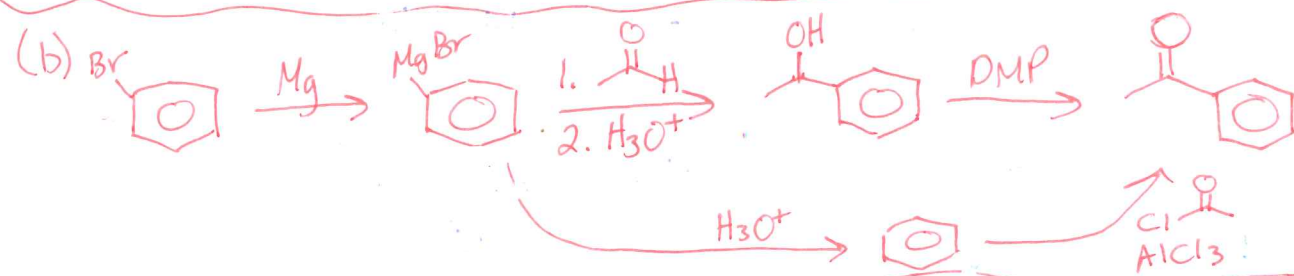 (b) Br
Mg
MgBr
1. O H
2. H3O+
OH
DMP
O
H3O+
O
Cl
AlCl3